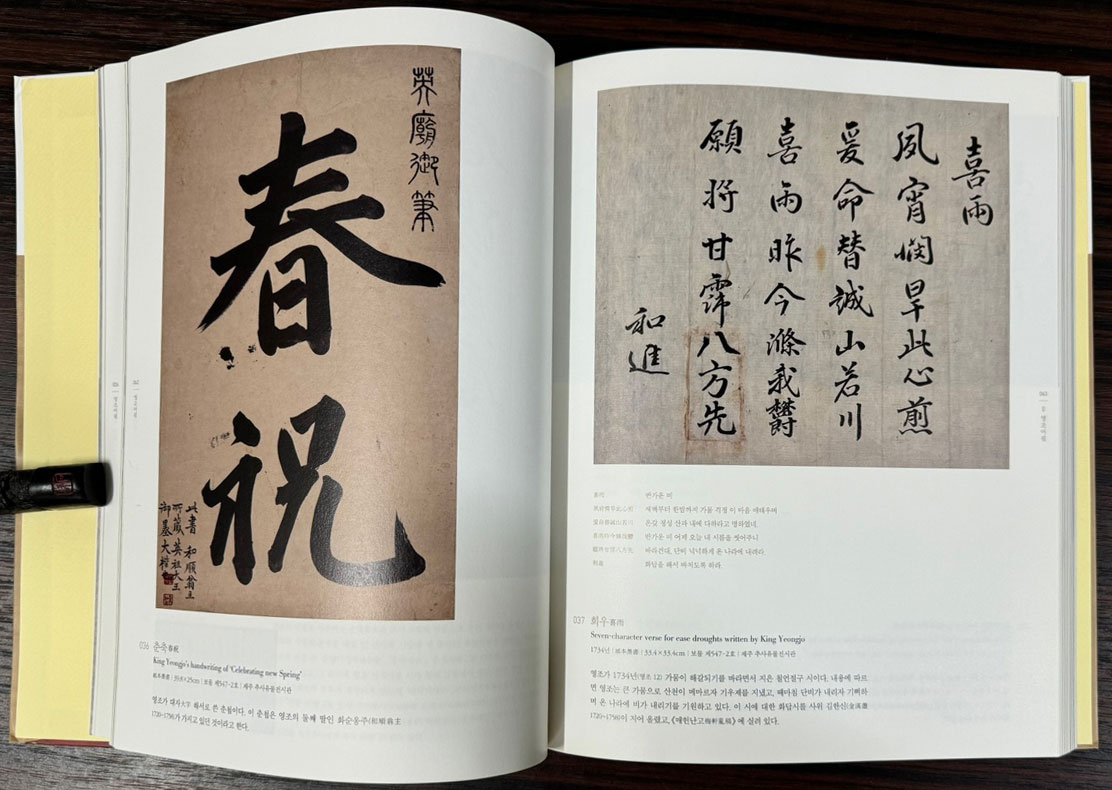 英廟御筆
春祝
此書 和順翁主
所藏 英祖大王
御墨大楷也
036 춘축春祝
King Yeongjo's handwriting of "Celebrating new Spring"
紙本墨書 | 39.8×25cm | 보물 제547-2호 | 제주 추사유물전시관
영조가 대자大字 해서로 쓴 춘축이다. 이 춘축은 영조의 둘째 딸인 화순옹주(和順翁主
1720~1758)가 가지고 있던 것이라고 한다.
喜雨
夙宵憫旱此心煎
爰命替誠山若川
喜雨昨今滌我欝
願將甘霈八方先
和進
喜雨
반가운 비
새벽부터 한밤까지 가뭄 걱정 이 마음 애태우며
온갖 정성 산과 내에 다하라고 명하였네.
반가운 비 어제 오늘 내 시름을 씻어주니
바라건대, 단비 넉넉하게 온 나라에 내려라
和進
화답을 해서 바치도록 하라.
037 희우喜雨
Seven-character verse for ease droughts written by King Yeongjo
1734년 | 紙本墨書 | 33.4×33.4cm | 보물 제547-2호 | 제주 추사유물전시관
영조가 1734년(영조 12) 가뭄이 해갈되기를 바라면서 지은 칠언절구 시이다. 내용에 따르
면 영조는 큰 가뭄으로 산천이 메마르자 기우제를 지냈고, 때마침 단비가 내리자 기뻐하
며 온 나라에 비가 내리기를 기원하고 있다. 이 시에 대한 화답시를 사위 김한신(金漢藎
1720~1758)이 지어 올렸고, 《매헌난고梅軒亂稿》에 실려 있다.